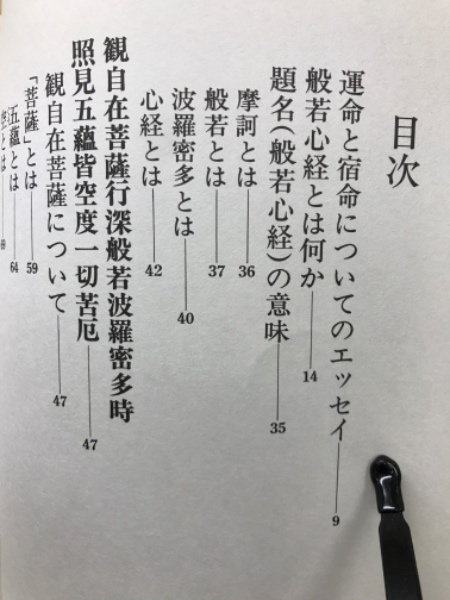 目次
運命と宿命についてのエッセイ――9
般若心経とは何か――14
題名(般若心経)の意味――35
摩訶とは――36
般若とは――37
波羅密多とは――40
心経とは――42
観自在菩薩行深般若波羅密多時
照見五蘊皆空度一切苦厄――47
観自在菩薩について――47
「菩薩」とは――59
五蘊とは――64
空とは――69